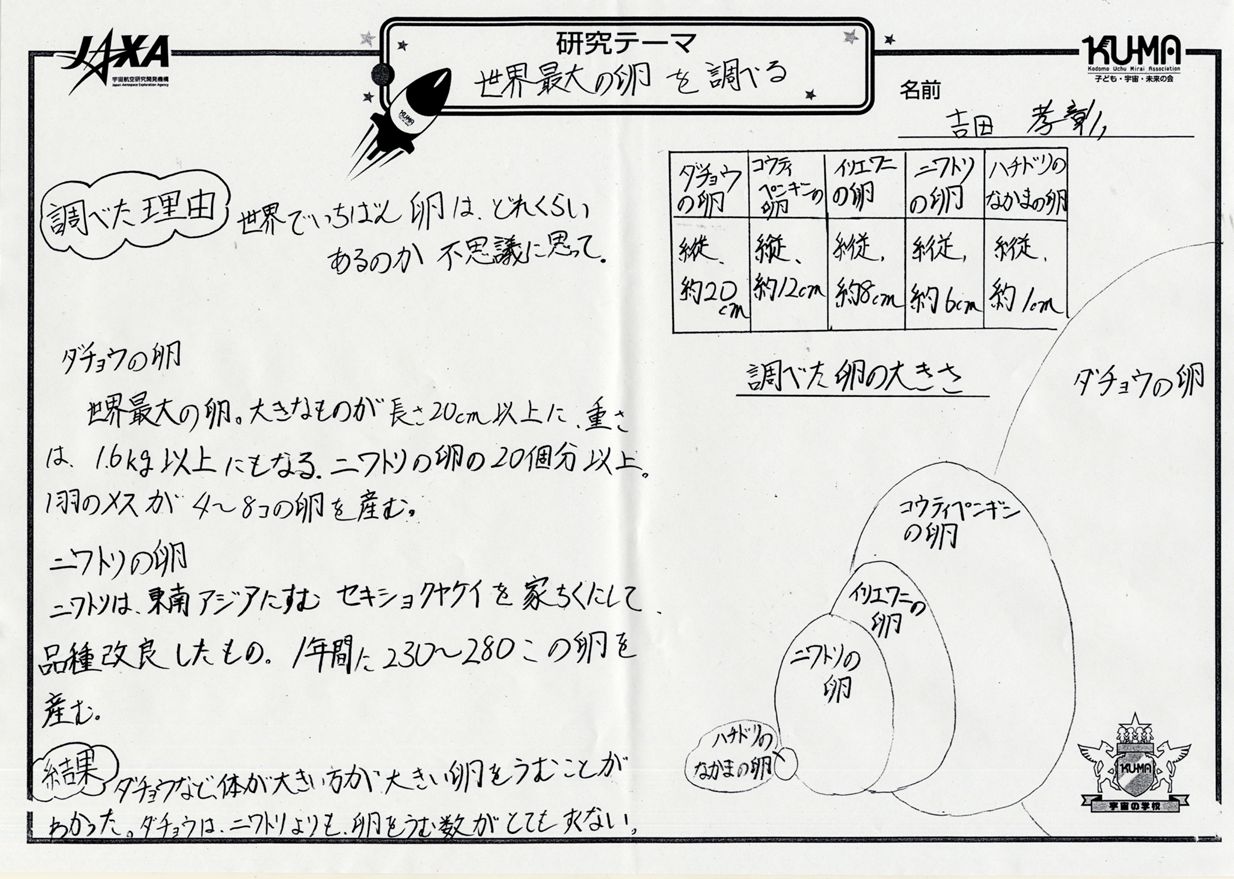 JAXA
宇宙航空研究開発機構
Japan Aerospace Exploration Agency
研究テーマ
世界最大の卵を調べる
KU-MA
Kodomo Uchu Mirai Association
子ども・宇宙・未来の会
名前
吉田 孝彰
KUMA
調べた理由
世界でいちばん卵は、どれくらい
あるのか不思議に思って。
ダチョウの卵
世界最大の卵。大きなものが長さ20cm以上に、重さ
は、1.6kg以上にもなる。ニワトリの卵の20個分以上。
1羽のメスが4〜8コの卵を産む。
ニワトリの卵
ニワトリは、東南アジアにすむ セキショクヤケイを家ちくにして、
品種改良したもの。1年間に230〜280この卵を
産む。
結果
ダチョウなど、体が大きい方が、大きい卵をうむことが
わかった。ダチョウは、ニワトリよりも、卵をうむ数がとてもすくない。
ダチョウの卵
コウテイペンギンの卵
イリエワニの卵
ニワトリの卵
ハチドリのなかまの卵
縦、約20cm
縦、約12cm
縦、約8cm
縦、約6cm
縦、約1cm
調べた卵の大きさ
ダチョウの卵
コウテイペンギン
の卵
イリエワニの
卵
ニワトリの
卵
ハチドリの
なかまの卵
KU-MA
宇宙の学校